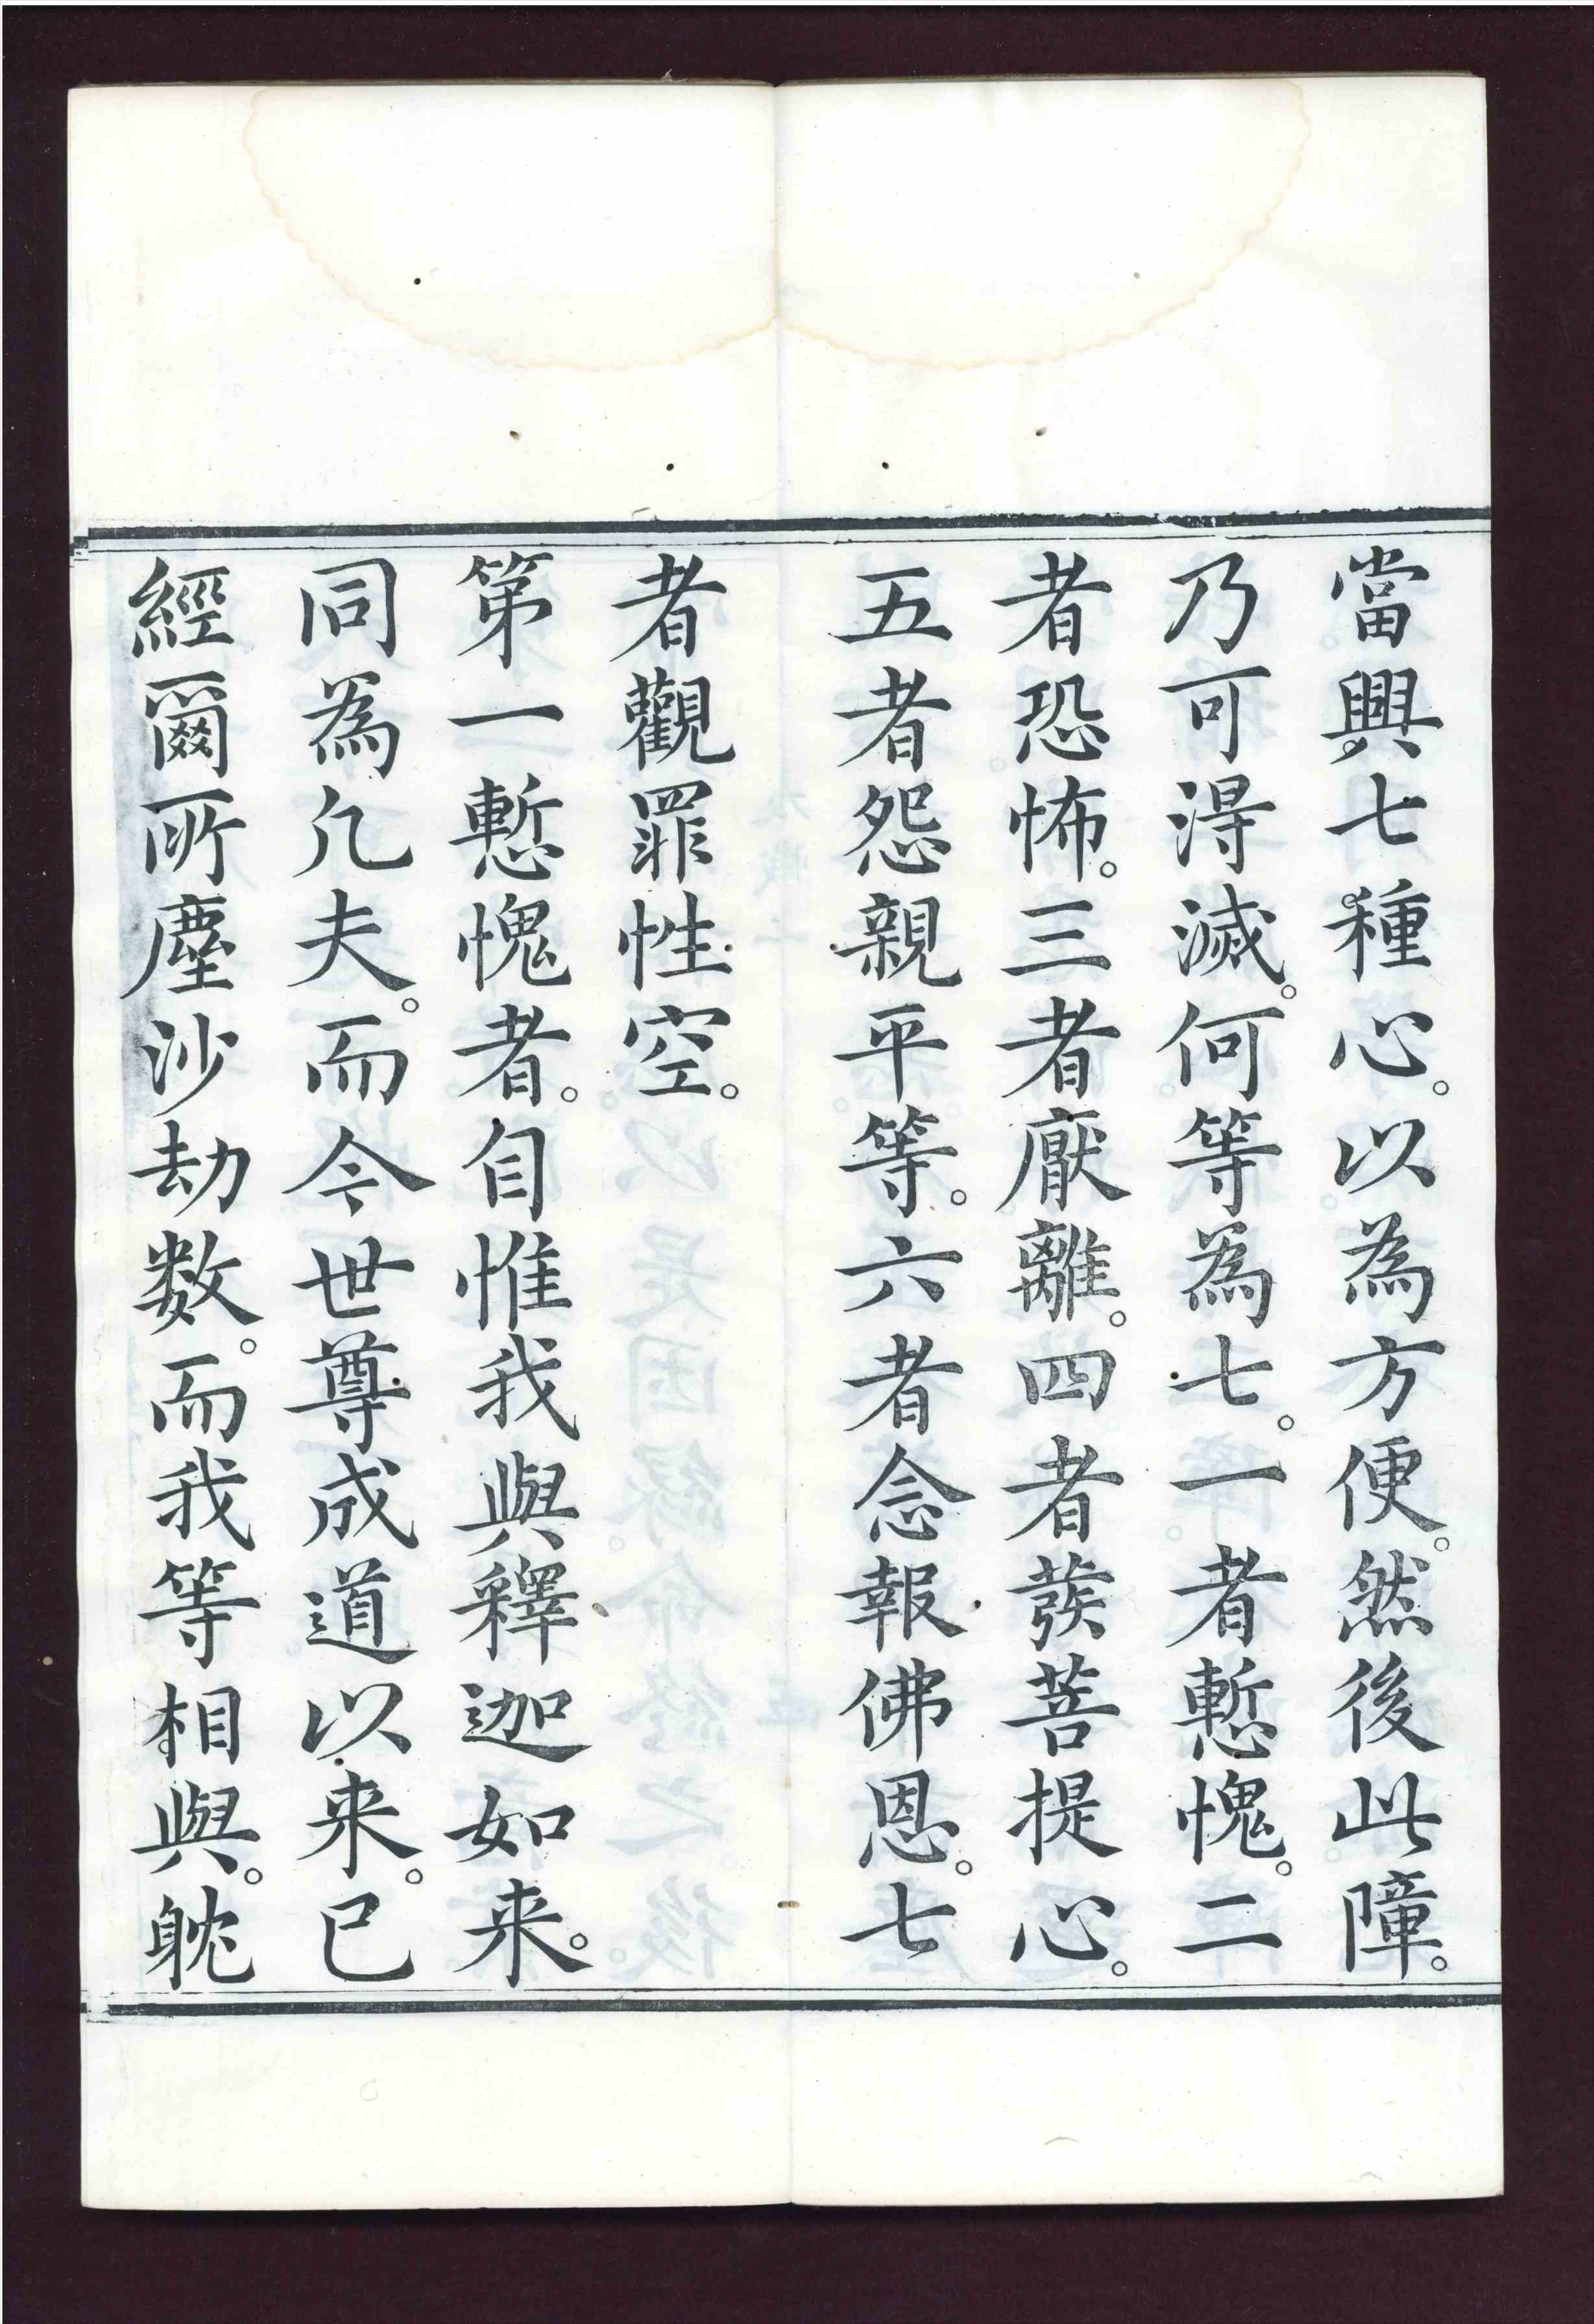 當興七種心。以為方便。然後此障。
乃可淂滅。何等為七。一者慙愧。二
者恐怖。三者厭離。四者蕟菩提心。
五者怨親平等。六者念報佛恩。七
者觀罪性空。
第一慙愧者。自惟我與釋迦如来。
同為凢夫。而今世尊成道以来。已
經爾所塵沙劫数。而我等相與。躭